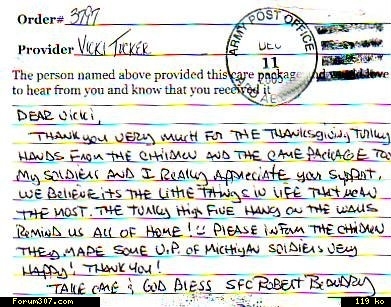 Order# 3797
Provider Vicki Tucker
ARMY POST OFFICE
DEC
11
2005
AE
The person named above provided this care package and would love
to hear from you and know that you received it
DEAR Vicki,
THANK you VERY MUCH FOR THE THANKSgiving TURKEY
HANDS FROM THE CHILDREN AND THE CARE PACKAGE TOO
My SOLDIERS AND I REALLY APPRECIATE YOUR SUPPORT,
WE BELIEVE ITS THE LITTLE THINGS IN LIFE THAT MEAN
THE MOST. THE TURKEY HIGH FIVE HANDS ON THE WALLS
REMIND US ALL OF HOME! PLEASE INFORM THE CHILDREN
THEY MADE SOME U.P. OF MICHIGAN SOLDIERS VERY
HAPPY! THANK YOU!
TAKE CARE & GOD BLESS SFC ROBERT BEAUDRY
Forum307.com
119 ko